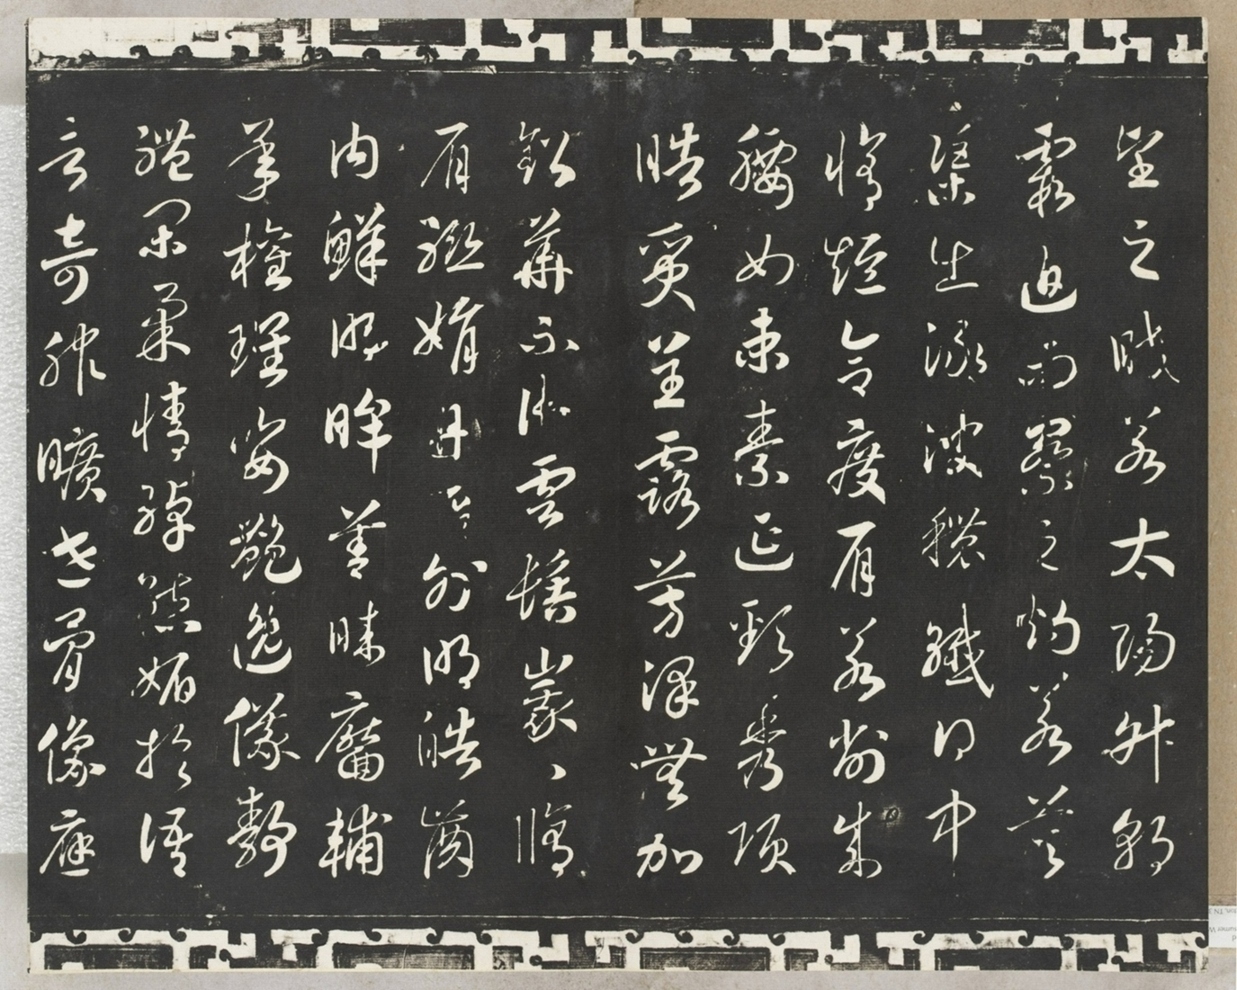 望之皎若太陽升朝
霞迫而察之灼若芙
蕖出淥波穠纖得中
脩短合度肩若削成
腰如束素延頸秀項
皓質呈露芳澤無加
鉛華不御雲髻峩〻脩
眉聯娟丹脣外朗皓齒
内鮮明眸善睞靨輔
承權瓌姿豔逸儀靜
體閑柔情綽態媚於語
言奇服曠世骨像應